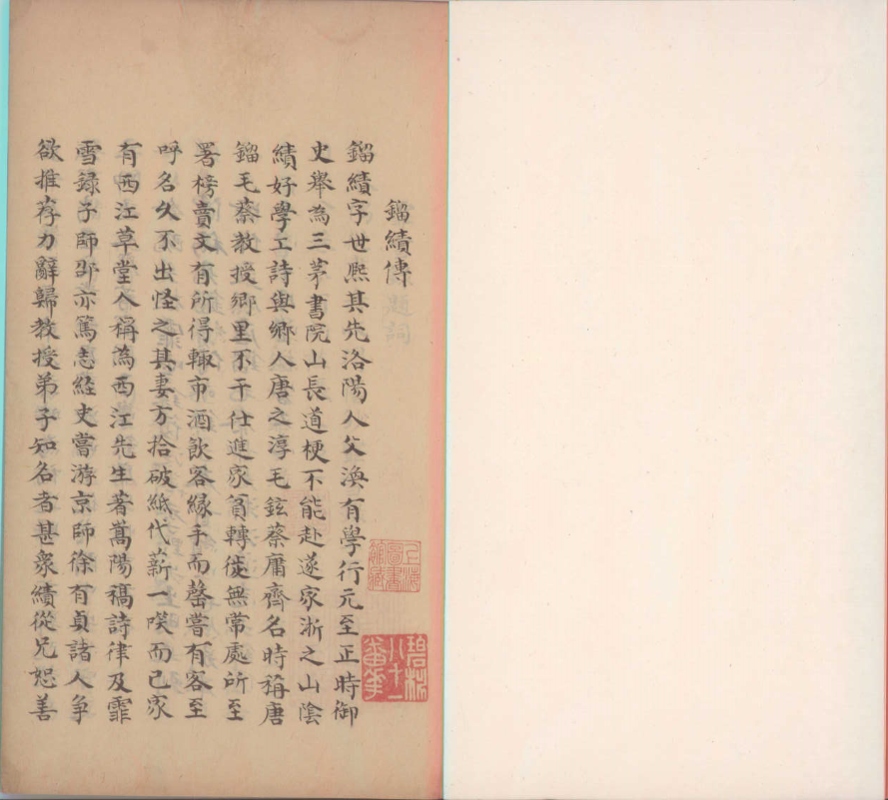 鎦績傳
鎦績字世熈其先洛陽人父渙有學行元至正時御
史舉為三茅書院山長道梗不能赴遂家浙之山陰
績好學工詩與鄉人唐之淳毛鉉蔡庸齊名時稱唐
鎦毛蔡教授鄉里不干仕進家貧轉徙無常處所至
署榜賣文有所得輙市酒飲客緣手而罄嘗有客至
呼名久不出怪之其妻方拾破紙代薪一唉而已家
有西江草堂人稱為西江先生著嵩陽稿詩律及霏
雪録子師邵亦篤志經史嘗游京師徐有貞諸人争
欲推荐力辭歸教授弟子知名者甚衆績從兄恕善
上海圖書館藏